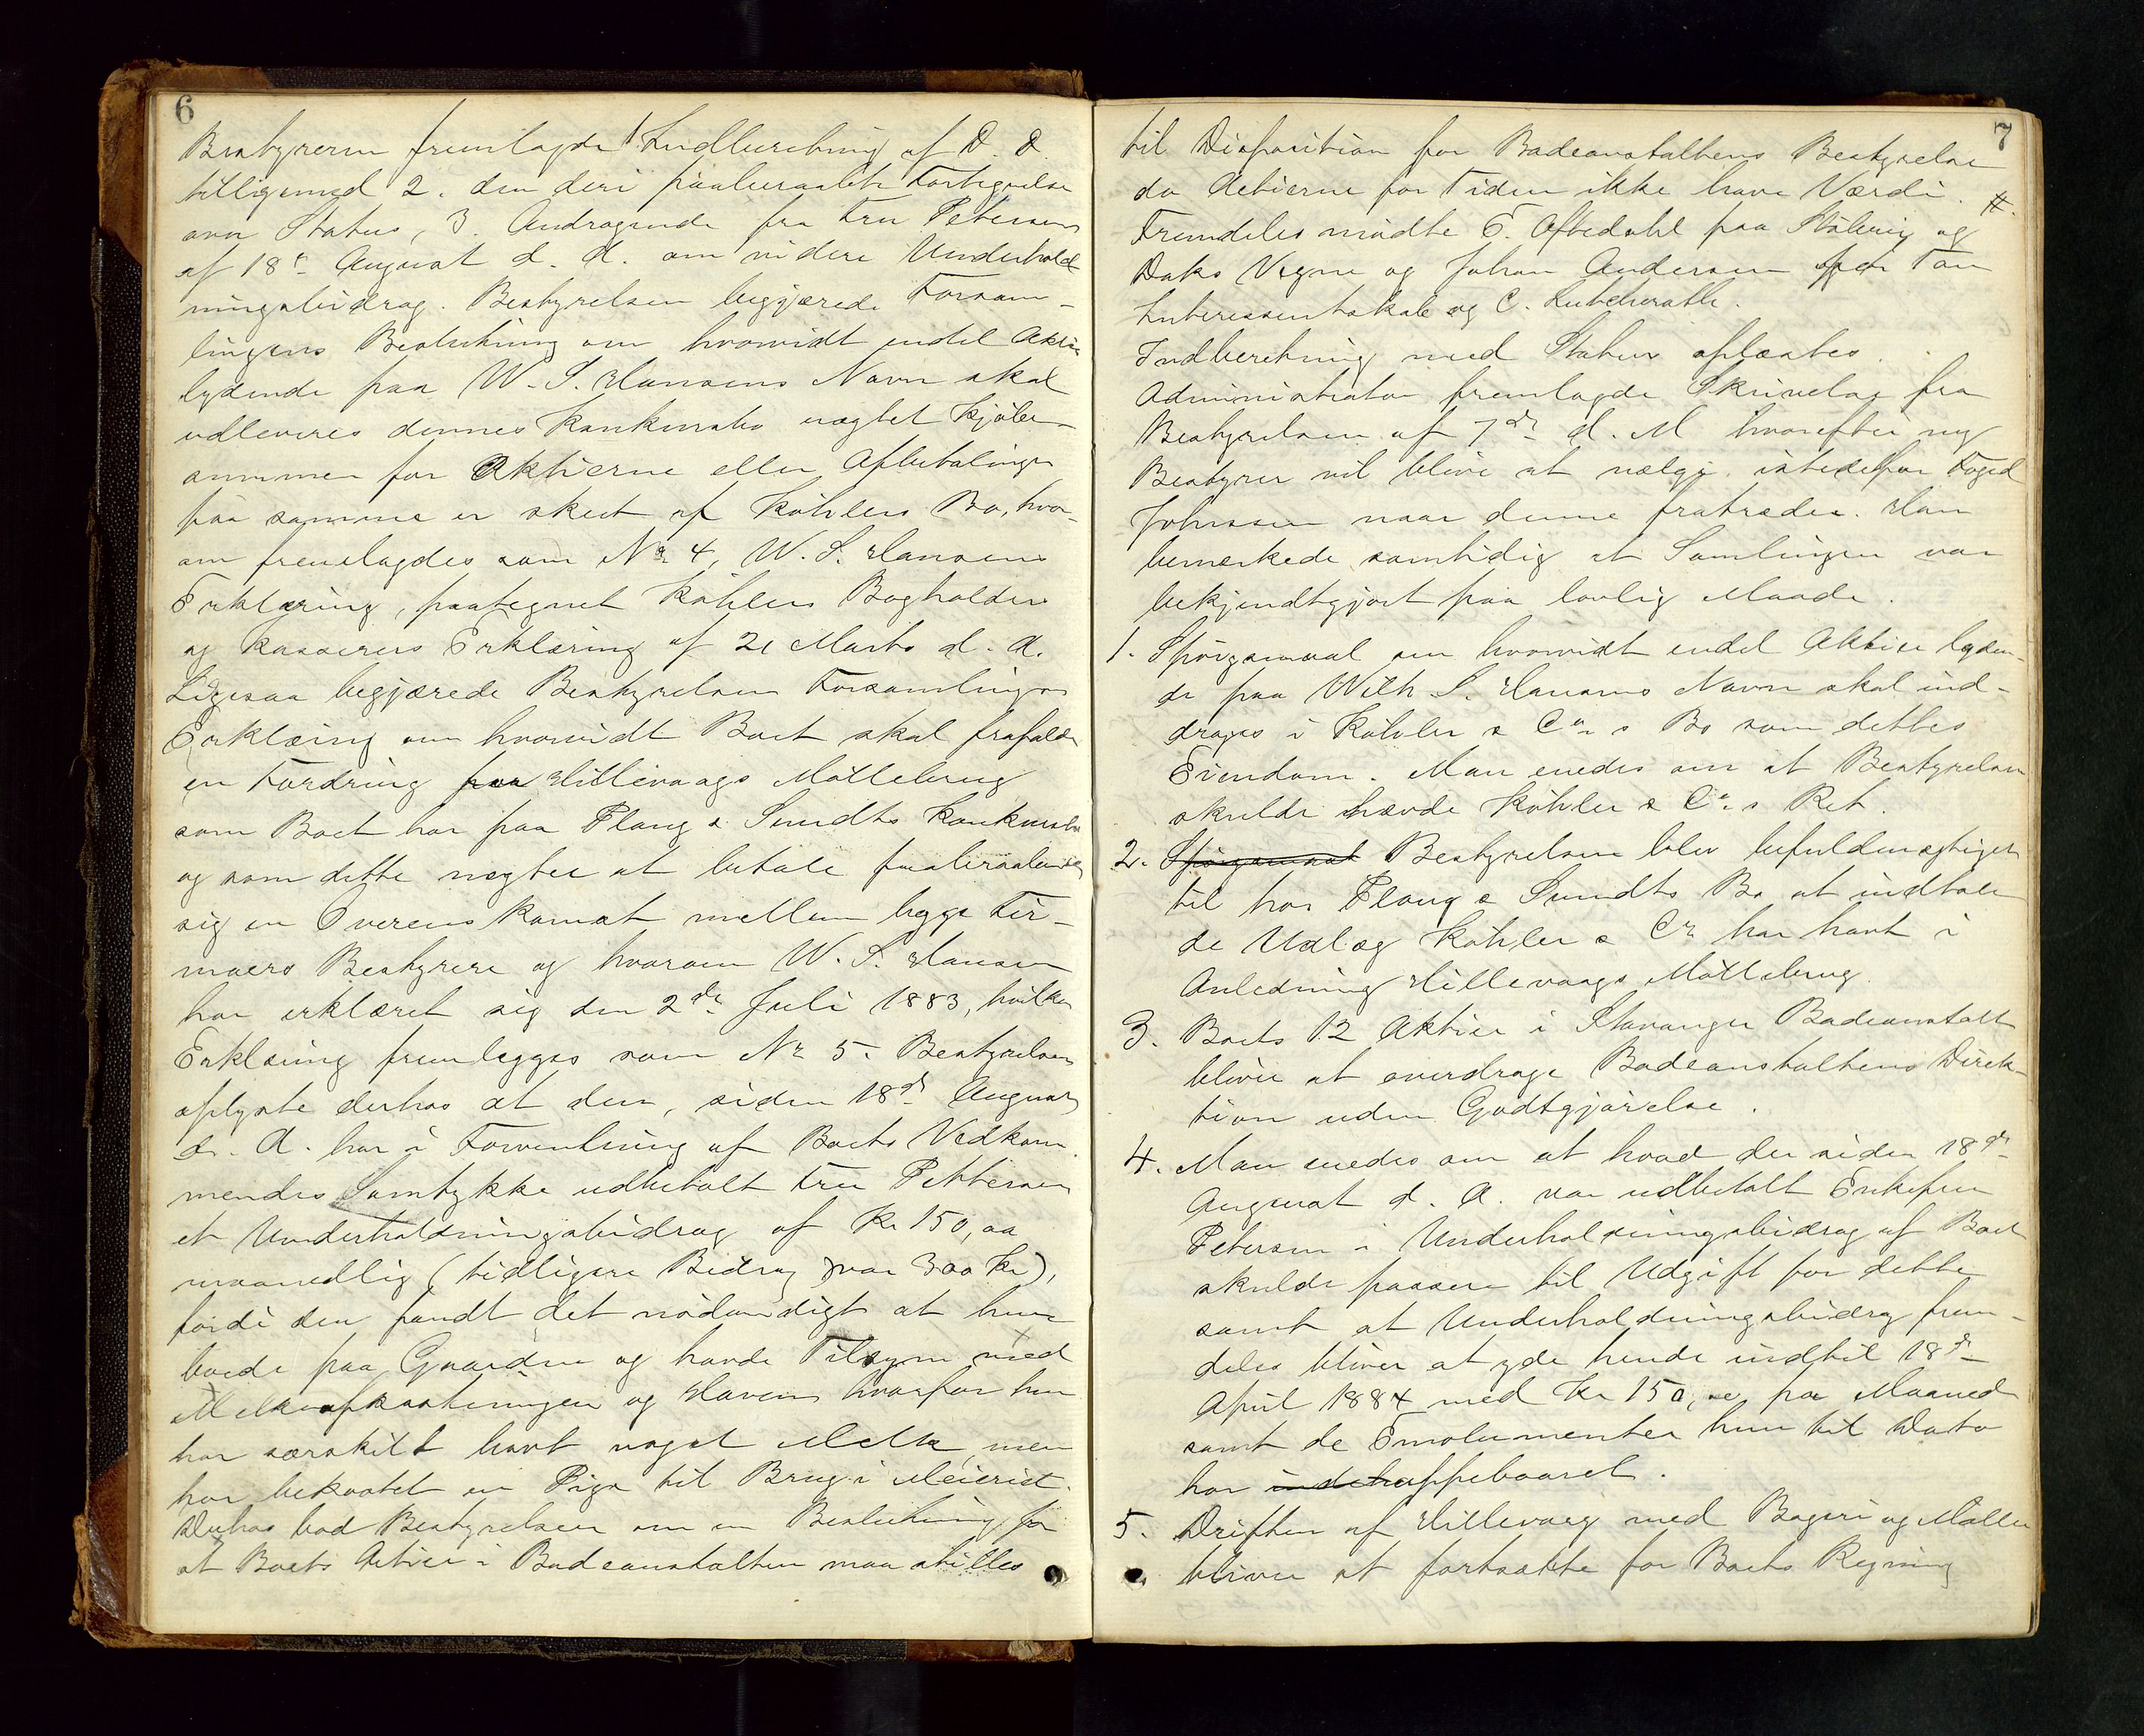 6
Bestyreren fremlagde 1. Indberetning af D. D.
tilligemed 2. den deri paaberaabte Fortegnelse
over Status, 3. Andragende fra Fru Petersen
af 18de August d. A. om videre Underhold-
ningsbidrag. Bestyrelsen begjærede Forsam-
lingens Beslutning om hvorvidt endel Aktier
lydende paa W. S. Hansens Navn skal
udleveres dennes Konkursbo uagtet Kjøbe-
summen for Aktierne eller Afbetalinger
paa samme er skeet af Køhlers Bo, hvor-
om fremlagdes som No 4, W. S. Hansens
Erklæring, paategnet Køhlers Bogholders
og Kasserers Erklæring af 21 Marts d. A.
Ligesaa begjærede Bestyrelsen Forsamlingens
Erklæring om hvorvidt Boet skal frafalde
en Fordring paa Hillevaags Møllebrug
som Boet har paa Ploug & Sundts Konkursbo
og som dette nægter at betale paaberaabende
sig en Overenskomst mellem begge Fir-
maers Bestyrere og hvorom W. S. Hansen
har erklæret sig den 2de Juli 1883, hvilken
Erklæring fremlægges som No 5. Bestyrelsen
oplyste derhos at den, siden 18de August
d. A. har i Forventning af Boets Vedkom-
mendes Samtykke udbetalt Fru Pettersen
et Underholdningsbidrag af Kr 150,00
maanedlig (tidligere Bidrag var 300 Kr),
fordi den fandt det nødvendigt at hun
boede paa Gaarden og havde Tilsyn med
Melkeopkastningen og Haven hvorfor hun
har særskilt havt noget Melk, men
har bekostet en Pige til Brug i Meieriet.
Derhos bad Bestyrelsen om en Beslutning for
at Boets Actier i Badeanstalten maa stilles
7
til Disposition for Badeanstaltens Bestyrelse
da Actierne for Tiden ikke have Værdi. #.
Fremdeles mødte E. Aftedahl paa Stølerig og
Daks Vegne og Johan Andersen for Tou
Interessentskab og C. Lutcherath.
Indberetning med Status oplæstes.
Administrator fremlagde Skrivelse fra
Bestyrelsen af 7de d. M hvorefter ny
Bestyrer vil blive at vælge istedetfor Foged
Johnssen naar denne fratræder. Han
bemærkede samtidig at Samlingen var
bekjendtgjort paa lovlig Maade.
1. Spørgsmaal om hvorvidt endel Aktier lyden-
de paa Wilh S. Hansens Navn skal ind-
drages i Køhler & Co.s Bo som dettes
Eiendom. Man enedes om at Bestyrelsen
skulde hævde Køhler & Co.s Ret.
2. Spørgsmaal Bestyrelsen blev befuldmægtiget
til hos Ploug & Sundts Bo at indtale
de Udlæg Køhler & Co har havt i
Anledning Hillevaags Møllebrug.
3. Boets 12 Aktier i Stavanger Badeanstalt
bliver at overdrage Badeanstaltens Direk-
tion uden Godtgjørelse.
4. Man enedes om at hvad der siden 18de
August d. A. var udbetalt Enkefru
Petersen i Underholdningsbidrag af Boet
skulde passere til Udgift for dette
samt at Underholdningsbidrag frem-
deles bliver at yde hende indtil 18de
April 1884 med Kr 150,00 pr Maaned
samt de Emolumenter hun til Dato
har oppebaaret.
5. Driften af Hillevaag med Bageri og Mølle
bliver at fortsætte for Boets Regning